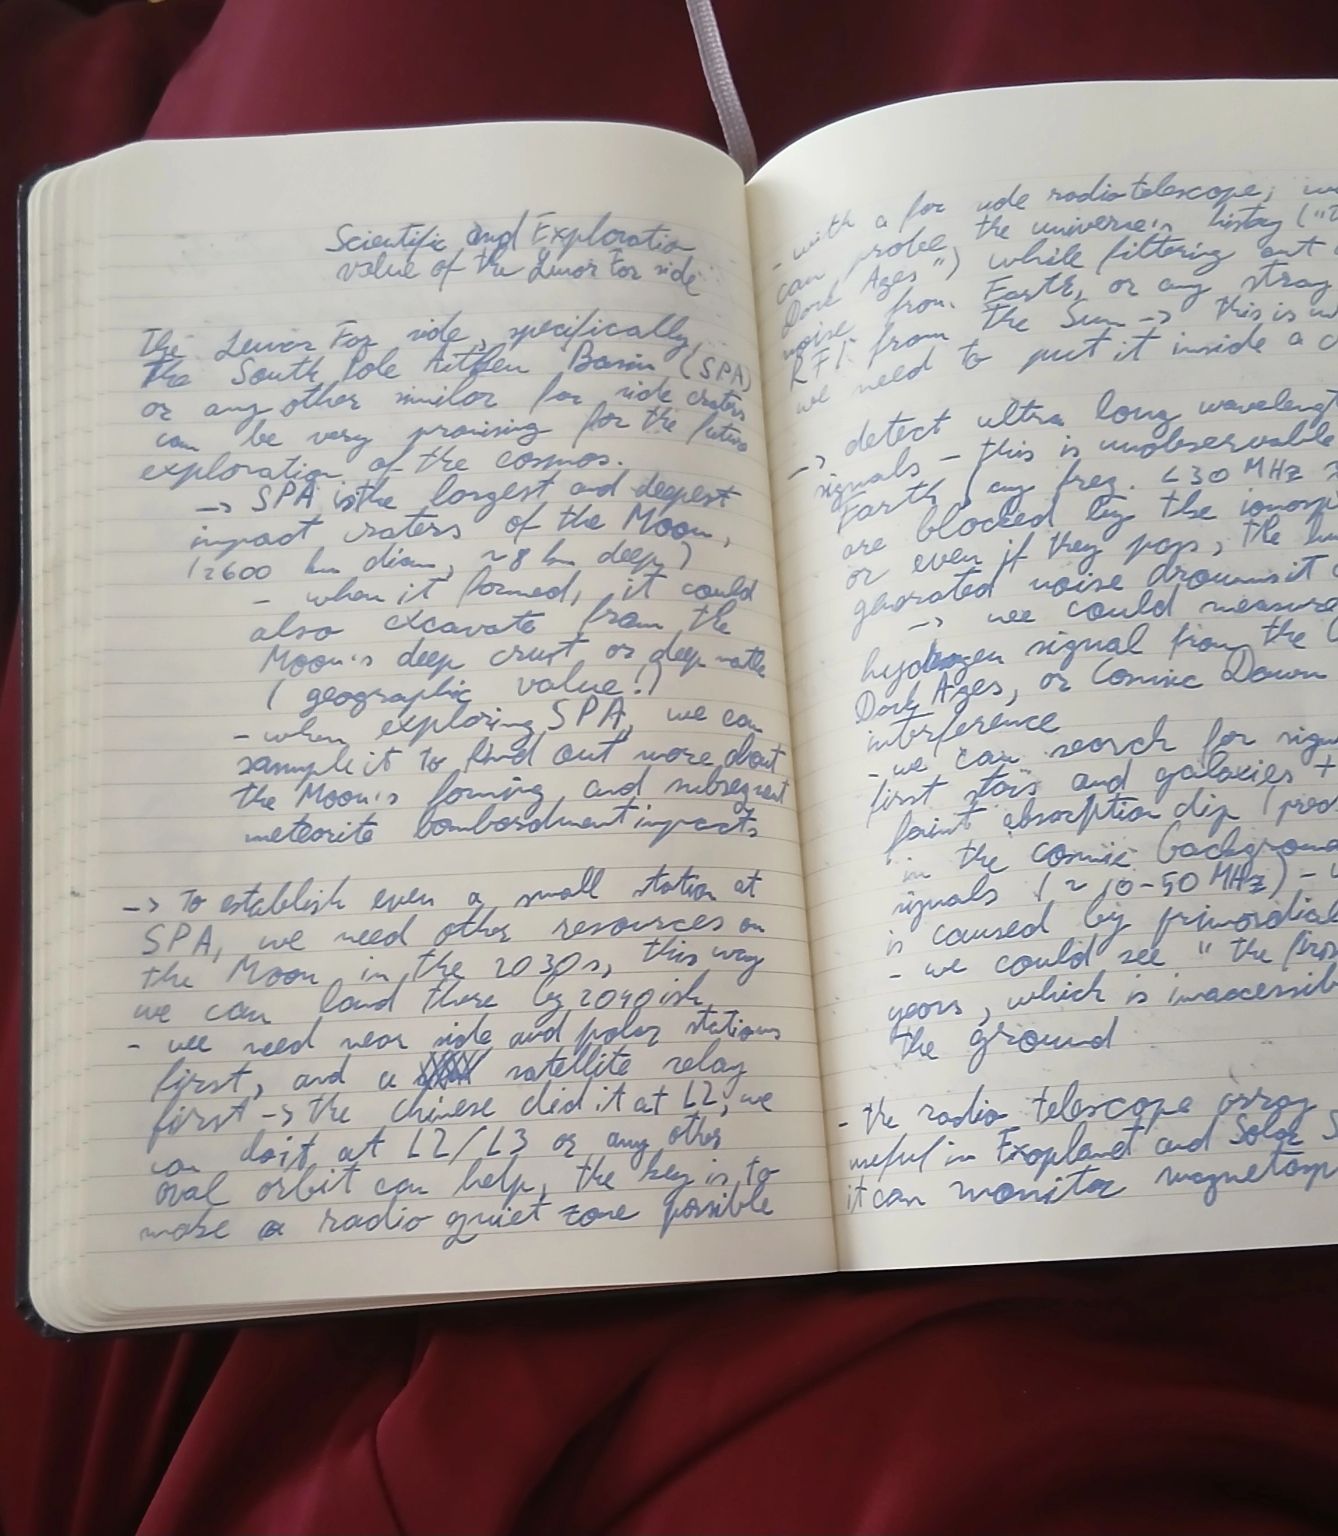 Scientific and Exploration
value of the Lunar Far side
The Lunar Far side, specifically
the South Pole Aitken Basin (SPA)
or any other similar far side craters
can be very promising for the future
exploration of the cosmos.
-> SPA is the largest and deepest
impact craters of the Moon,
(2600 km diam, ~8 km deep)
- when it formed, it could
also excavate from the
Moon's deep crust or deep mantle
(geographic value!)
- when exploring SPA, we can
sample it to find out more about
the Moon's forming and subsequent
meteorite bombardment impacts
-> To establish even a small station at
SPA, we need other resources on
the Moon in the 2030s, this way
we can land there by 2040ish
- we need near side and polar stations
first, and a satellite relay
first -> the chinese did it at L2, we
can do it at L2/L3 or any other
oval orbit can help, the key is to
make a radio quiet zone possible
- with a far side radiotelescope, we
can probe the universe's history ("
Dark Ages") while filtering out
noise from Earth, or any stray
RFI from the Sun -> this is
we need to put it inside a
-> detect ultra long wavelength
signals - this is unobservable
Earth (any freq. <30 MHz
are blocked by the
or even if they pass, the
generated noise drowns it
-> we could measure
hydrogen signal from the
Dark Ages, or Cosmic Dawn
interference
- we can search for
first stars and galaxies +
faint absorption dip
in the cosmic background
signals (~10-50 MHz) -
is caused by primordial
- we could see "the
years, which is
the ground
- the radio telescope array
useful in Exoplanet and Solar
it can monitor